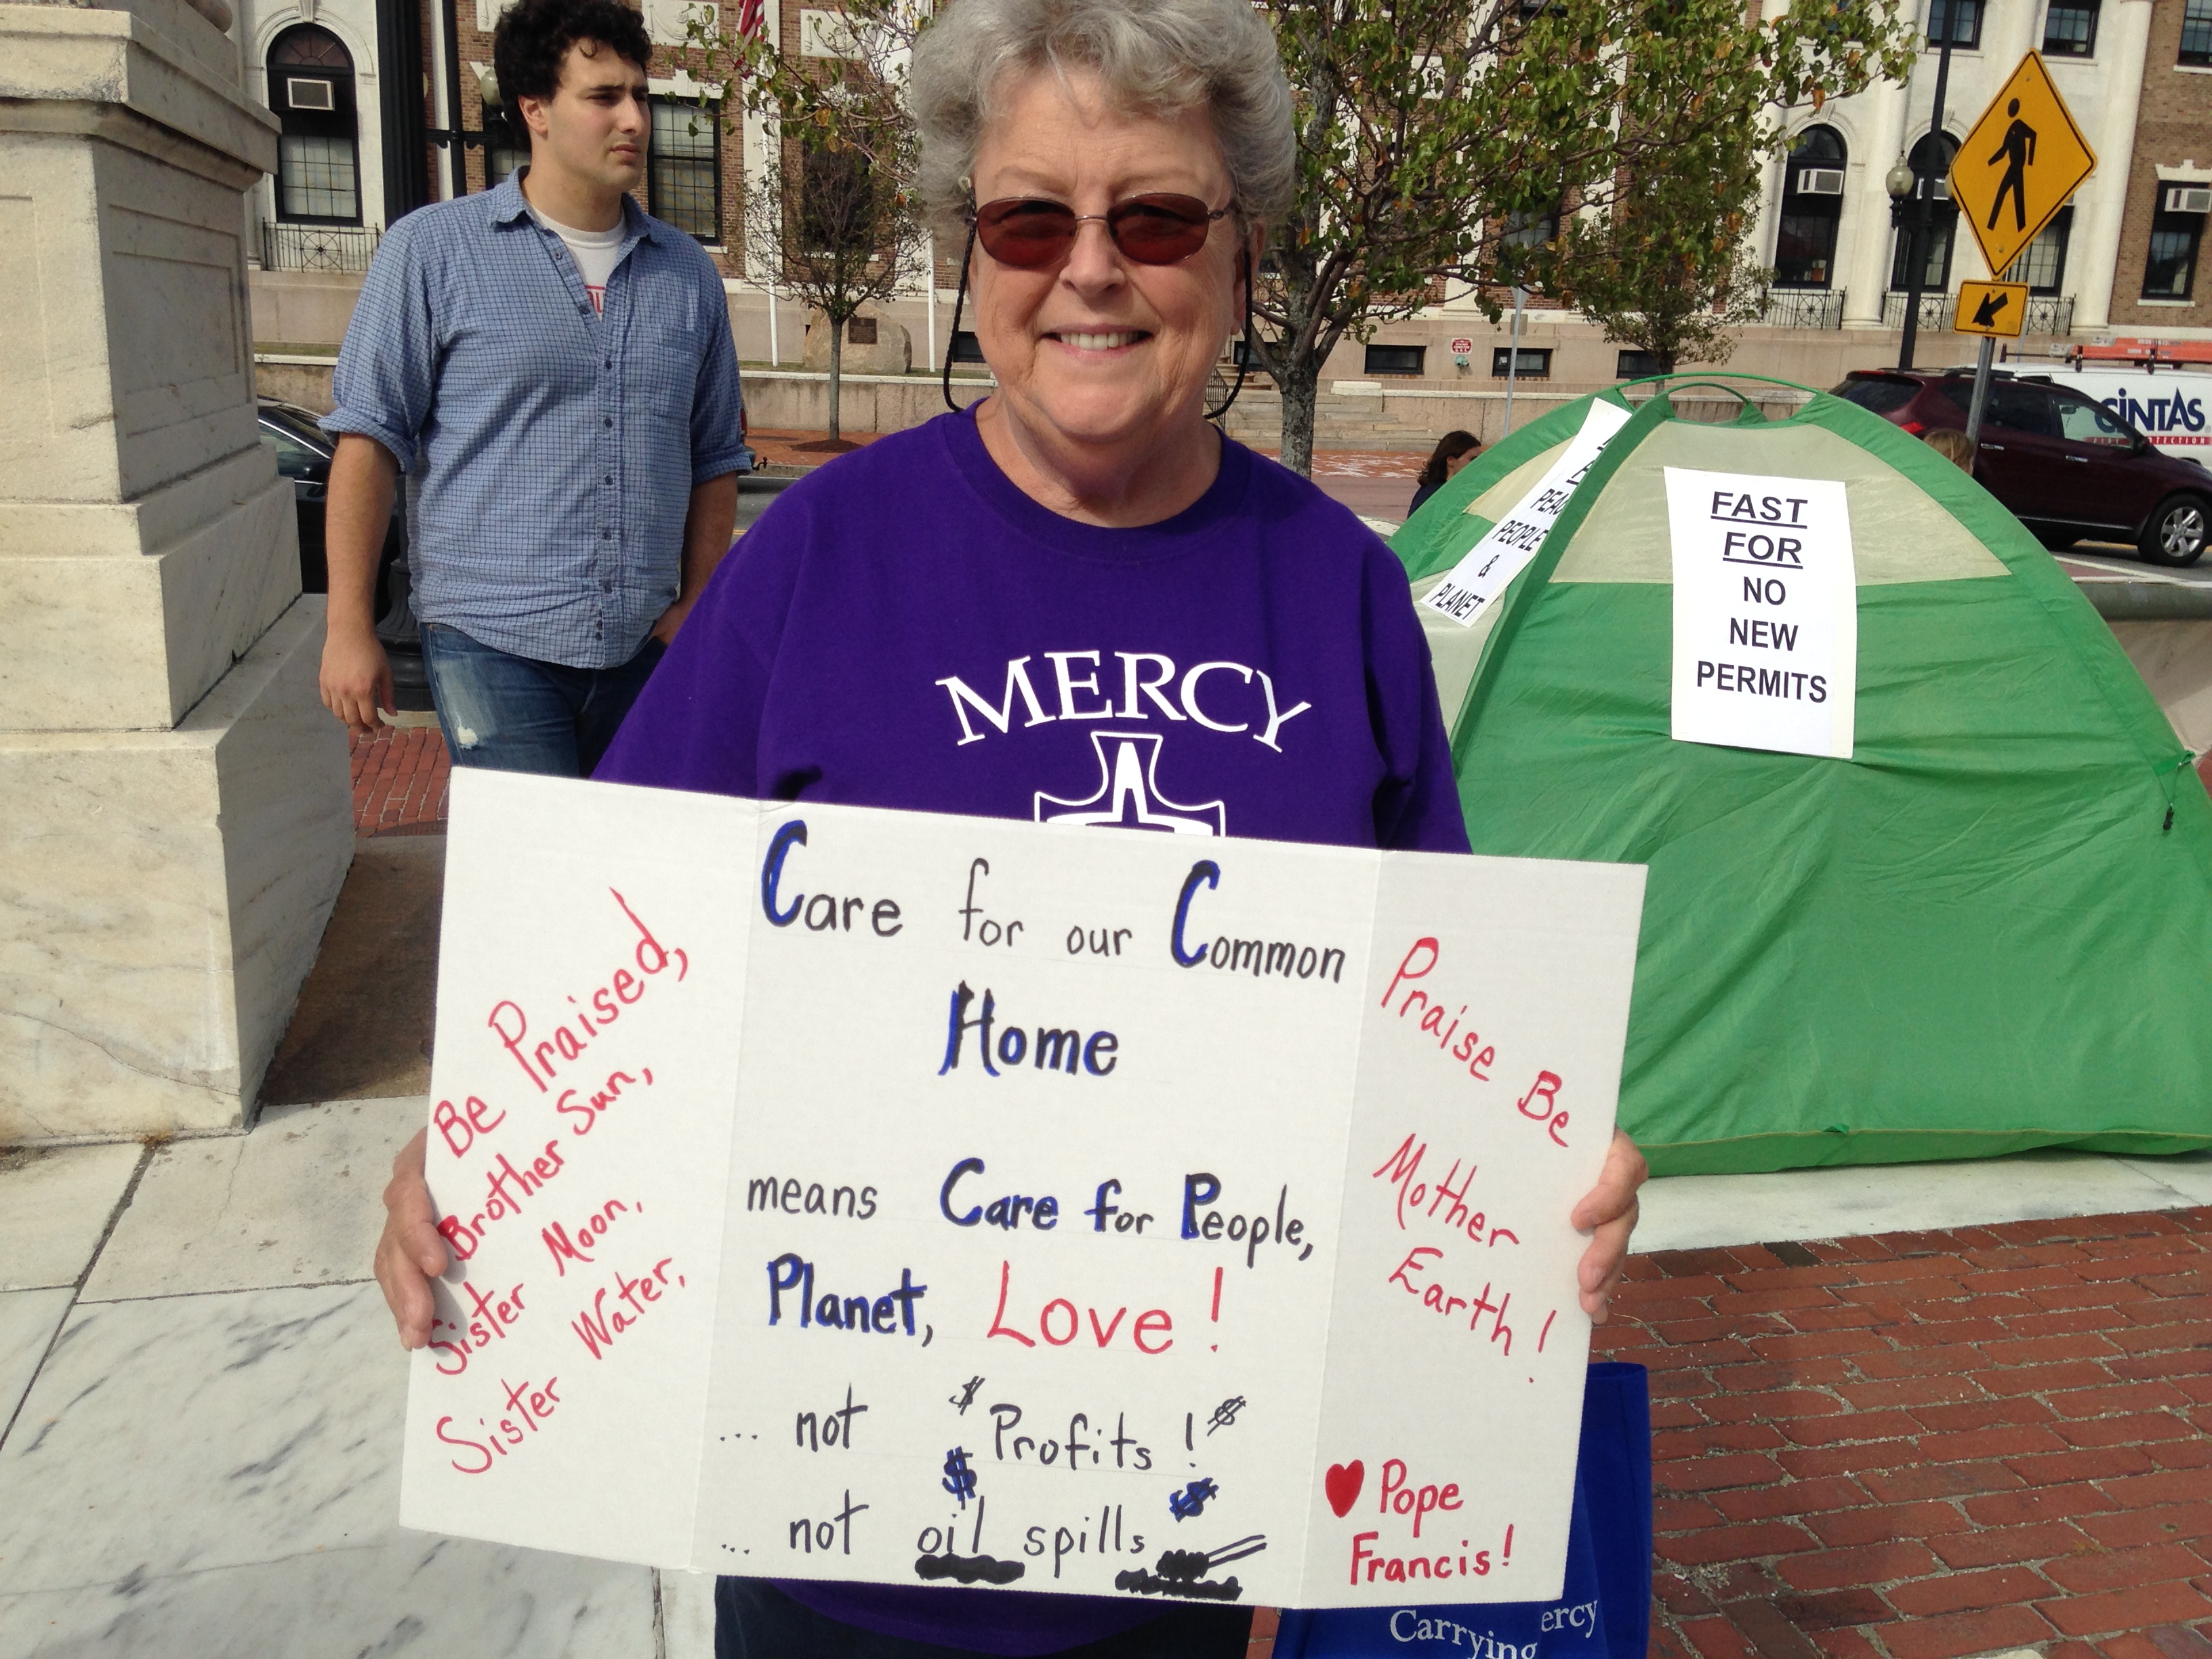 MERCY
Be Praised,
Brother Sun,
Sister Moon,
Sister Water,
Care for our Common
Home
means Care for People,
Planet, Love!
... not $ Profits! $
$ $
... not oil spills
Praise Be
Mother
Earth!
♥ Pope
Francis!
PEOPLE
&
PLANET
FAST
FOR
NO
NEW
PERMITS
CINTAS
Carrying